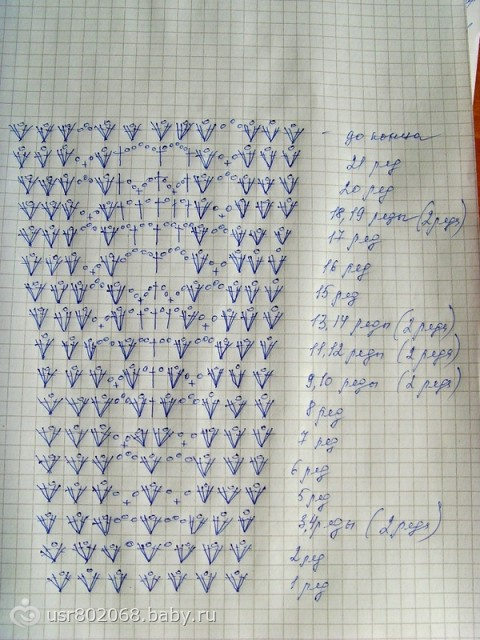 до конца
21 ред
20 ред
18,19 реды (2 реда)
17 ред
16 ред
15 ред
13,14 реды (2 реда)
11,12 реды (2 реда)
9,10 реды (2 реда)
8 ред
7 ред
6 ред
5 ред
3,4 реды (2 реда)
2 ред
1 ред
usr802068.baby.ru